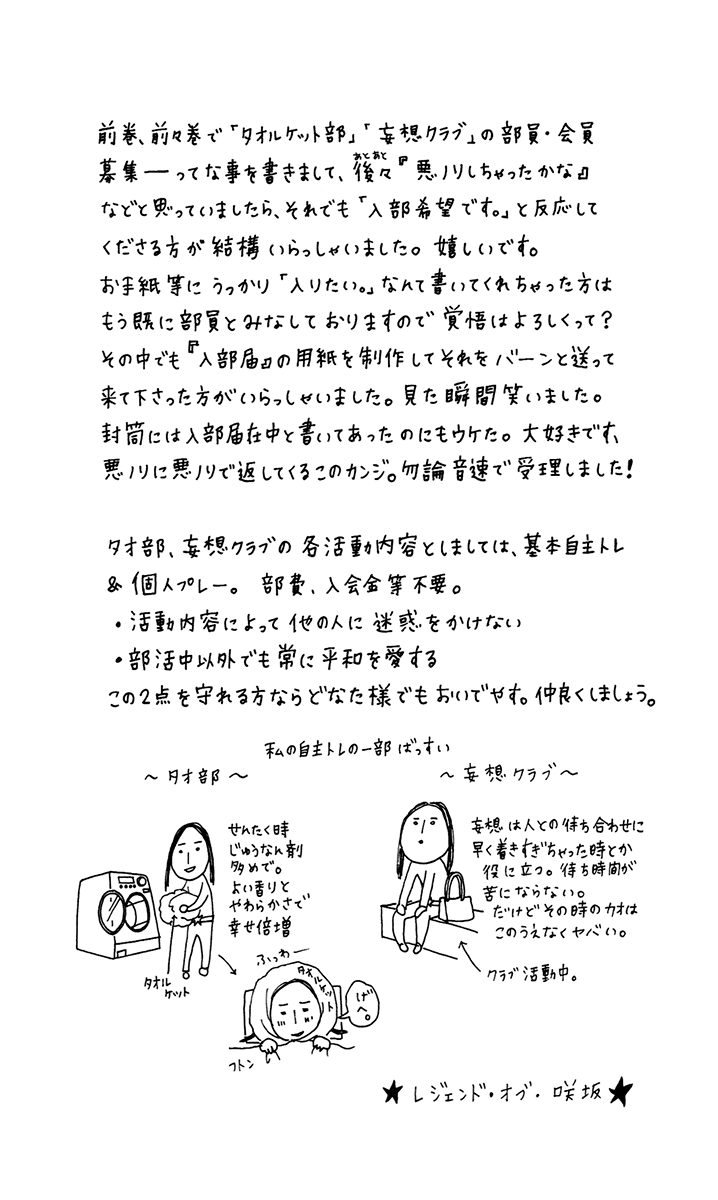 前巻、前々巻で「タオルケット部」「妄想クラブ」の部員・会員
募集―ってな事を書きまして、後々『悪ノリしちゃったかな』
あとあと
などと思っていましたら、それでも「入部希望です。」と反応して
くださる方が結構いらっしゃいました。嬉しいです。
お手紙等にうっかり「入りたい。」なんて書いてくれちゃった方は
もう既に部員とみなしておりますので覚悟はよろしくって?
その中でも『入部届』の用紙を制作してそれをバーンと送って
来て下さった方がいらっしゃいました。見た瞬間笑いました。
封筒には入部届在中と書いてあったのにもウケた。大好きです、
悪ノリに悪ノリで返してくるこのカンジ。勿論音速で受理しました!
タオ部、妄想クラブの各活動内容としましては、基本自主トレ
&個人プレー。 部費、入会金等不要。
・活動内容によって他の人に迷惑をかけない
・部活中以外でも常に平和を愛する
この2点を守れる方ならどなた様でもおいでやす。仲良くしましょう。
私の自主トレの一部ばっすい
~タオ部~
せんたく時
じゅうなん剤
多めで。
よい香りと
やわらかさで
幸せ倍増
タオル
ケット
ふっわー
タオルケット
げへ。
フトン
~妄想クラブ~
妄想は人との待ち合わせに
早く着きすぎちゃった時とか
役に立つ。待ち時間が
苦にならない。
だけどその時のカオは
このうえなくヤバい。
クラブ活動中。
★レジェンド・オブ・咲坂★